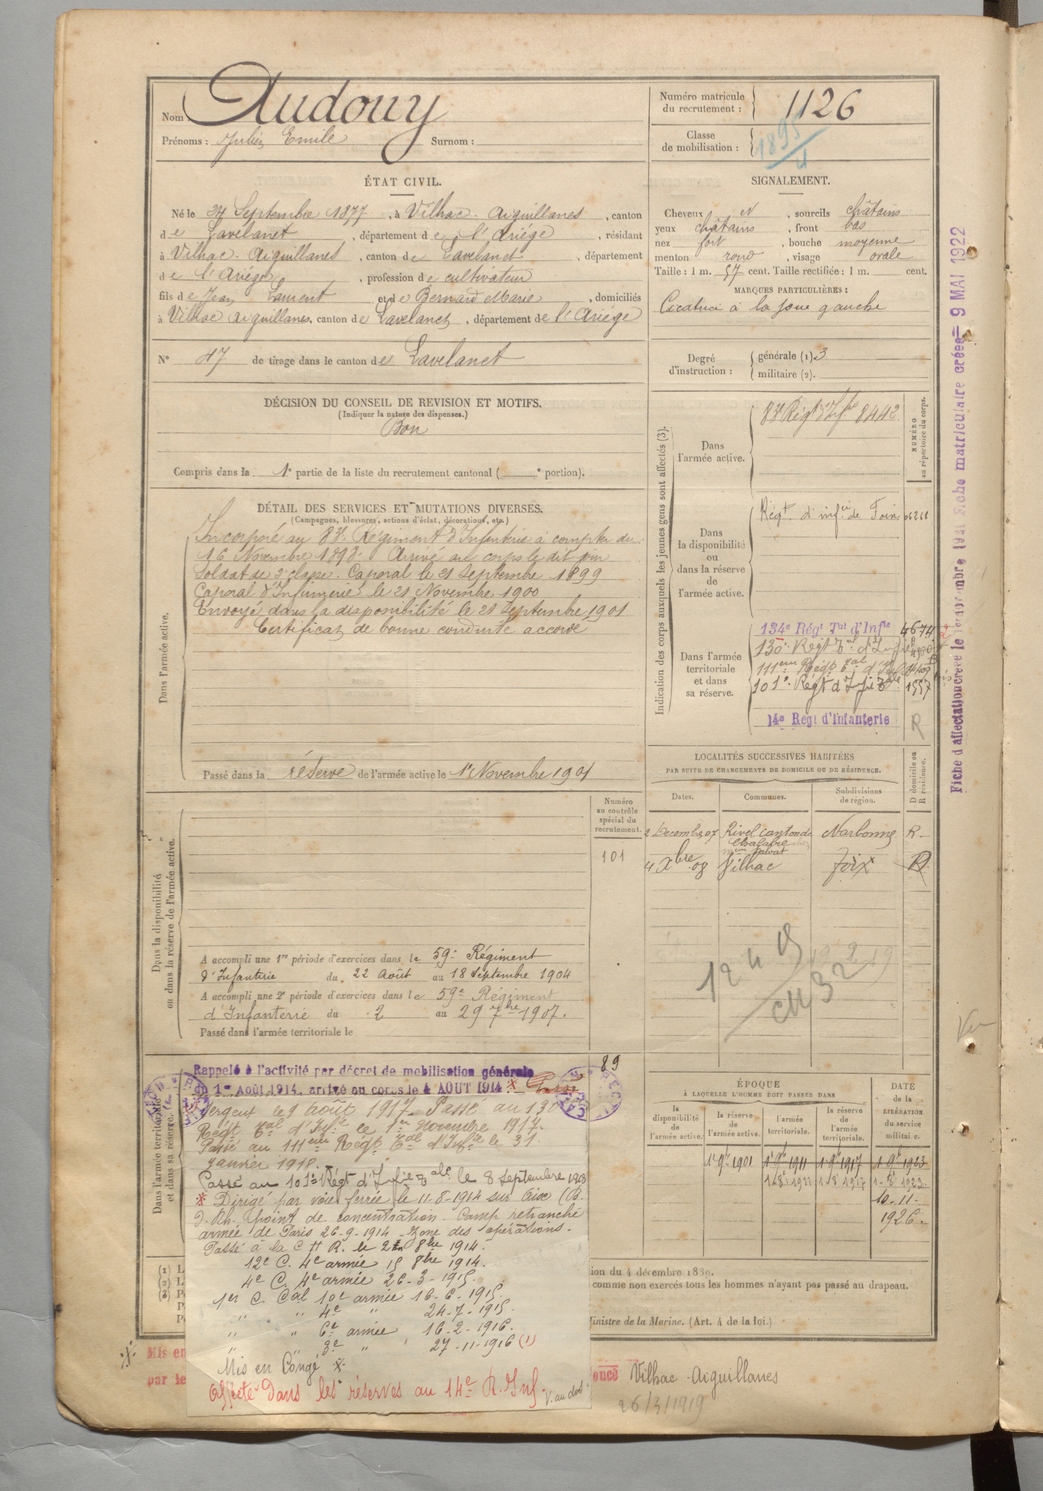 Nom Audouy
Prénoms : Julien Emile Surnom :
ÉTAT CIVIL.
Né le 27 Septembre 1877, à Vilhac-Aiguillanes, canton
de Lavelanet, département de l'Ariège, résidant
à Vilhac-Aiguillanes, canton de Lavelanet, département
de l'Ariège, profession de cultivateur
fils de Jean Laurent et de Bernard Marie, domiciliés
à Vilhac Aiguillanes, canton de Lavelanet, département de l'Ariège
N° 47 de tirage dans le canton de Lavelanet
DÉCISION DU CONSEIL DE REVISION ET MOTIFS.
(Indiquer la nature des dispenses.)
Bon
Compris dans la 1e partie de la liste du recrutement cantonal ( e portion).
DÉTAIL DES SERVICES ET MUTATIONS DIVERSES.
(Campagnes, blessures, actions d'éclat, décorations, etc.)
Dans l'armée active.
Incorporé au 87e Régiment d'Infanterie à compter du
16 Novembre 1898. Arrivé au corps le dit jour
Soldat de 2e classe. Caporal le 21 Septembre 1899
Caporal d'Infirmerie le 21 Novembre 1900
Envoyé dans la disponibilité le 21 Septembre 1901
Certificat de bonne conduite accordé
Passé dans la réserve de l'armée active le 1er Novembre 1901
Dans la disponibilité
ou dans la réserve de l'armée active.
Numéro
au contrôle
spécial du
recrutement.
101
A accompli une 1re période d'exercices dans le 59e Régiment
d'Infanterie du 22 Août au 18 Septembre 1904
A accompli une 2e période d'exercices dans le 59e Régiment
d'Infanterie du 2 au 29 7bre 1907.
Passé dans l'armée territoriale le
89
Dans l'armée territoriale
et dans sa réserve.
Rappelé à l'activité par décret de mobilisation générale
1er Août 1914, arrivé au corps le 4 AOUT 1914
Sergent le 9 août 1917. Passé au 130e
Régt tal d'Infie le 1er novembre 1917.
Passé au 111eme Régt tal d'Infie le 31
janvier 1918.
Passé au 101e Régt d'Infie tale le 8 Septembre 1918
* Dirigé par voie ferrée le 11-8-1914 sur Aix (B.
d. Rh. point de concentration - Camp retranché
armée de Paris 26-9-1914 - Zone des opérations.
Passé à la 8bre 1914.
12e C. 4e armée 15 8bre 1914.
4e C. 4e armée 26-3-1915
1er C. Cal 10e armée 16-6-1915
" " 4e " 24-7-1915.
" " 6e armée 16-2-1916.
" " 8e " 27-11-1916 (1)
Mis en Congé *
Affecté dans les réserves au 14e R. Inf. V. au dos
Numéro matricule
du recrutement : 1126
Classe
de mobilisation : 1895
SIGNALEMENT.
Cheveux et, sourcils châtains
yeux châtains, front bas
nez fort, bouche moyenne
menton rond, visage ovale
Taille : 1 m. 57 cent. Taille rectifiée : 1 m. cent.
MARQUES PARTICULIÈRES :
Cicatrice à la joue gauche
Degré
d'instruction :
générale (1). 3
militaire (2).
Indication des corps auxquels les jeunes gens sont affectés (3).
NUMÉRO
au répertoire du corps.
Dans
l'armée active.
87 Régt d'Infie 8442
Dans
la disponibilité
ou
dans la réserve
de
l'armée active.
Régt. d'infie de Foix
Dans l'armée
territoriale
et dans
sa réserve.
134e Régt Tal d'Infie 4674
130e Régt tal d'Infie
111eme Régt tal d'Infie
101e Régt d'Infie tale 1557
14e Régt d'Infanterie R
LOCALITÉS SUCCESSIVES HABITÉES
PAR SUITE DE CHANGEMENTS DE DOMICILE OU DE RÉSIDENCE.
Dates. Communes. Subdivisions de région. D domicile ou R résidence.
2 Décembre 07 Rivel canton de Chalabre Narbonne R.
4 Xbre 08 Vilhac Foix D
ÉPOQUE
À LAQUELLE L'HOMME DOIT PASSER DANS
la disponibilité de l'armée active. la réserve de l'armée active. l'armée territoriale. la réserve de l'armée territoriale.
DATE de la LIBÉRATION du service militaire.
1er 9bre 1901 1er 9bre 1911 1er 9bre 1917 1er 9bre 1923
10.11.
1926.
ion du 4 décembre 1889.
comme non exercés tous les hommes n'ayant pas passé au drapeau.
Ministre de la Marine. (Art. 4 de la loi.)
Mis en
par le
Vilhac-Aiguillanes
26/3/1919
Fiche matriculaire créée 9 MAI 1922